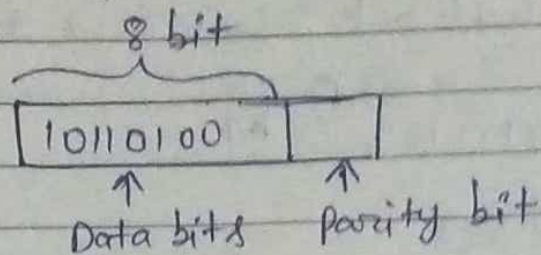 8 bit
10110100
Data bits parity bit